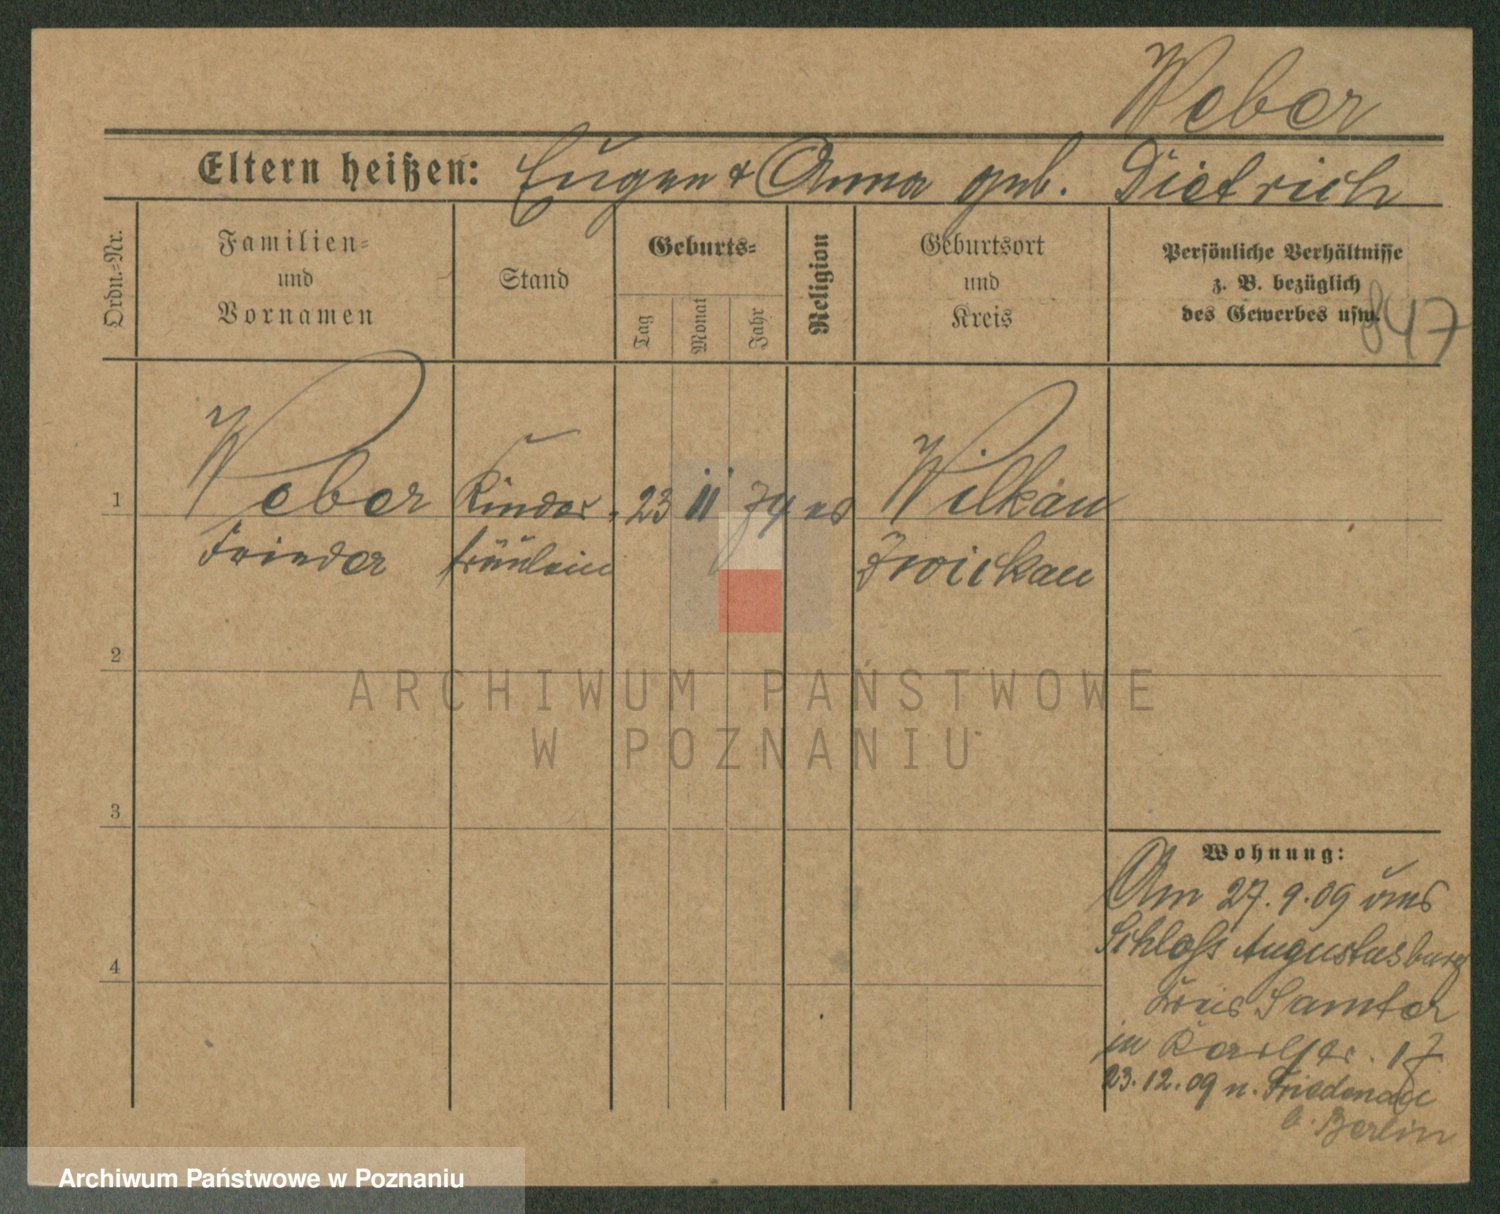 Weber
Eltern heißen: Eugen & Anna geb. Dietrich
Ordn.=Nr.
Familien=
und
Vornamen
Stand
Geburts=
Tag
Monat
Jahr
Religion
Geburtsort
und
Kreis
Persönliche Verhältnisse
z. B. bezüglich
des Gewerbes usw.
847
1
Weber Kinder= 23 11 79 ev Wilkau
Frieda fräulein Zwickau
2
3
4
Wohnung:
Am 27.9.09 aus
Schloß Augustusburg
Kreis Samter
in Karlstr. 17
23.12.09 n. Friedenau
b. Berlin
ARCHIWUM PAŃSTWOWE
W POZNANIU
Archiwum Państwowe w Poznaniu